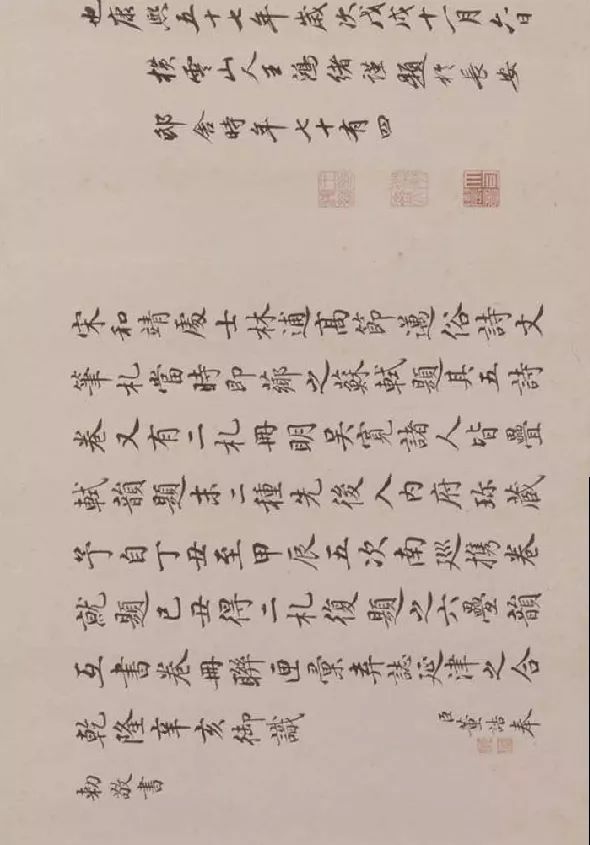 也康熙五十七年歲次戊戌十一月六日
橫雲山人王鴻緒謹題於長安
邸舍時年七十有四
宋和靖處士林逋高節邁俗詩文
筆札當時即薌之蘇軾題其五詩
卷又有二札冊明吳寬諸人皆疊
軾韻題末二種先後入內府珎藏
予自丁丑至甲辰五次南廵攜卷
就題己丑得二札復題之六疊韻
互書卷冊聯匣彙弆誌延津之合
乾隆辛亥御識
臣董誥奉
勅敬書